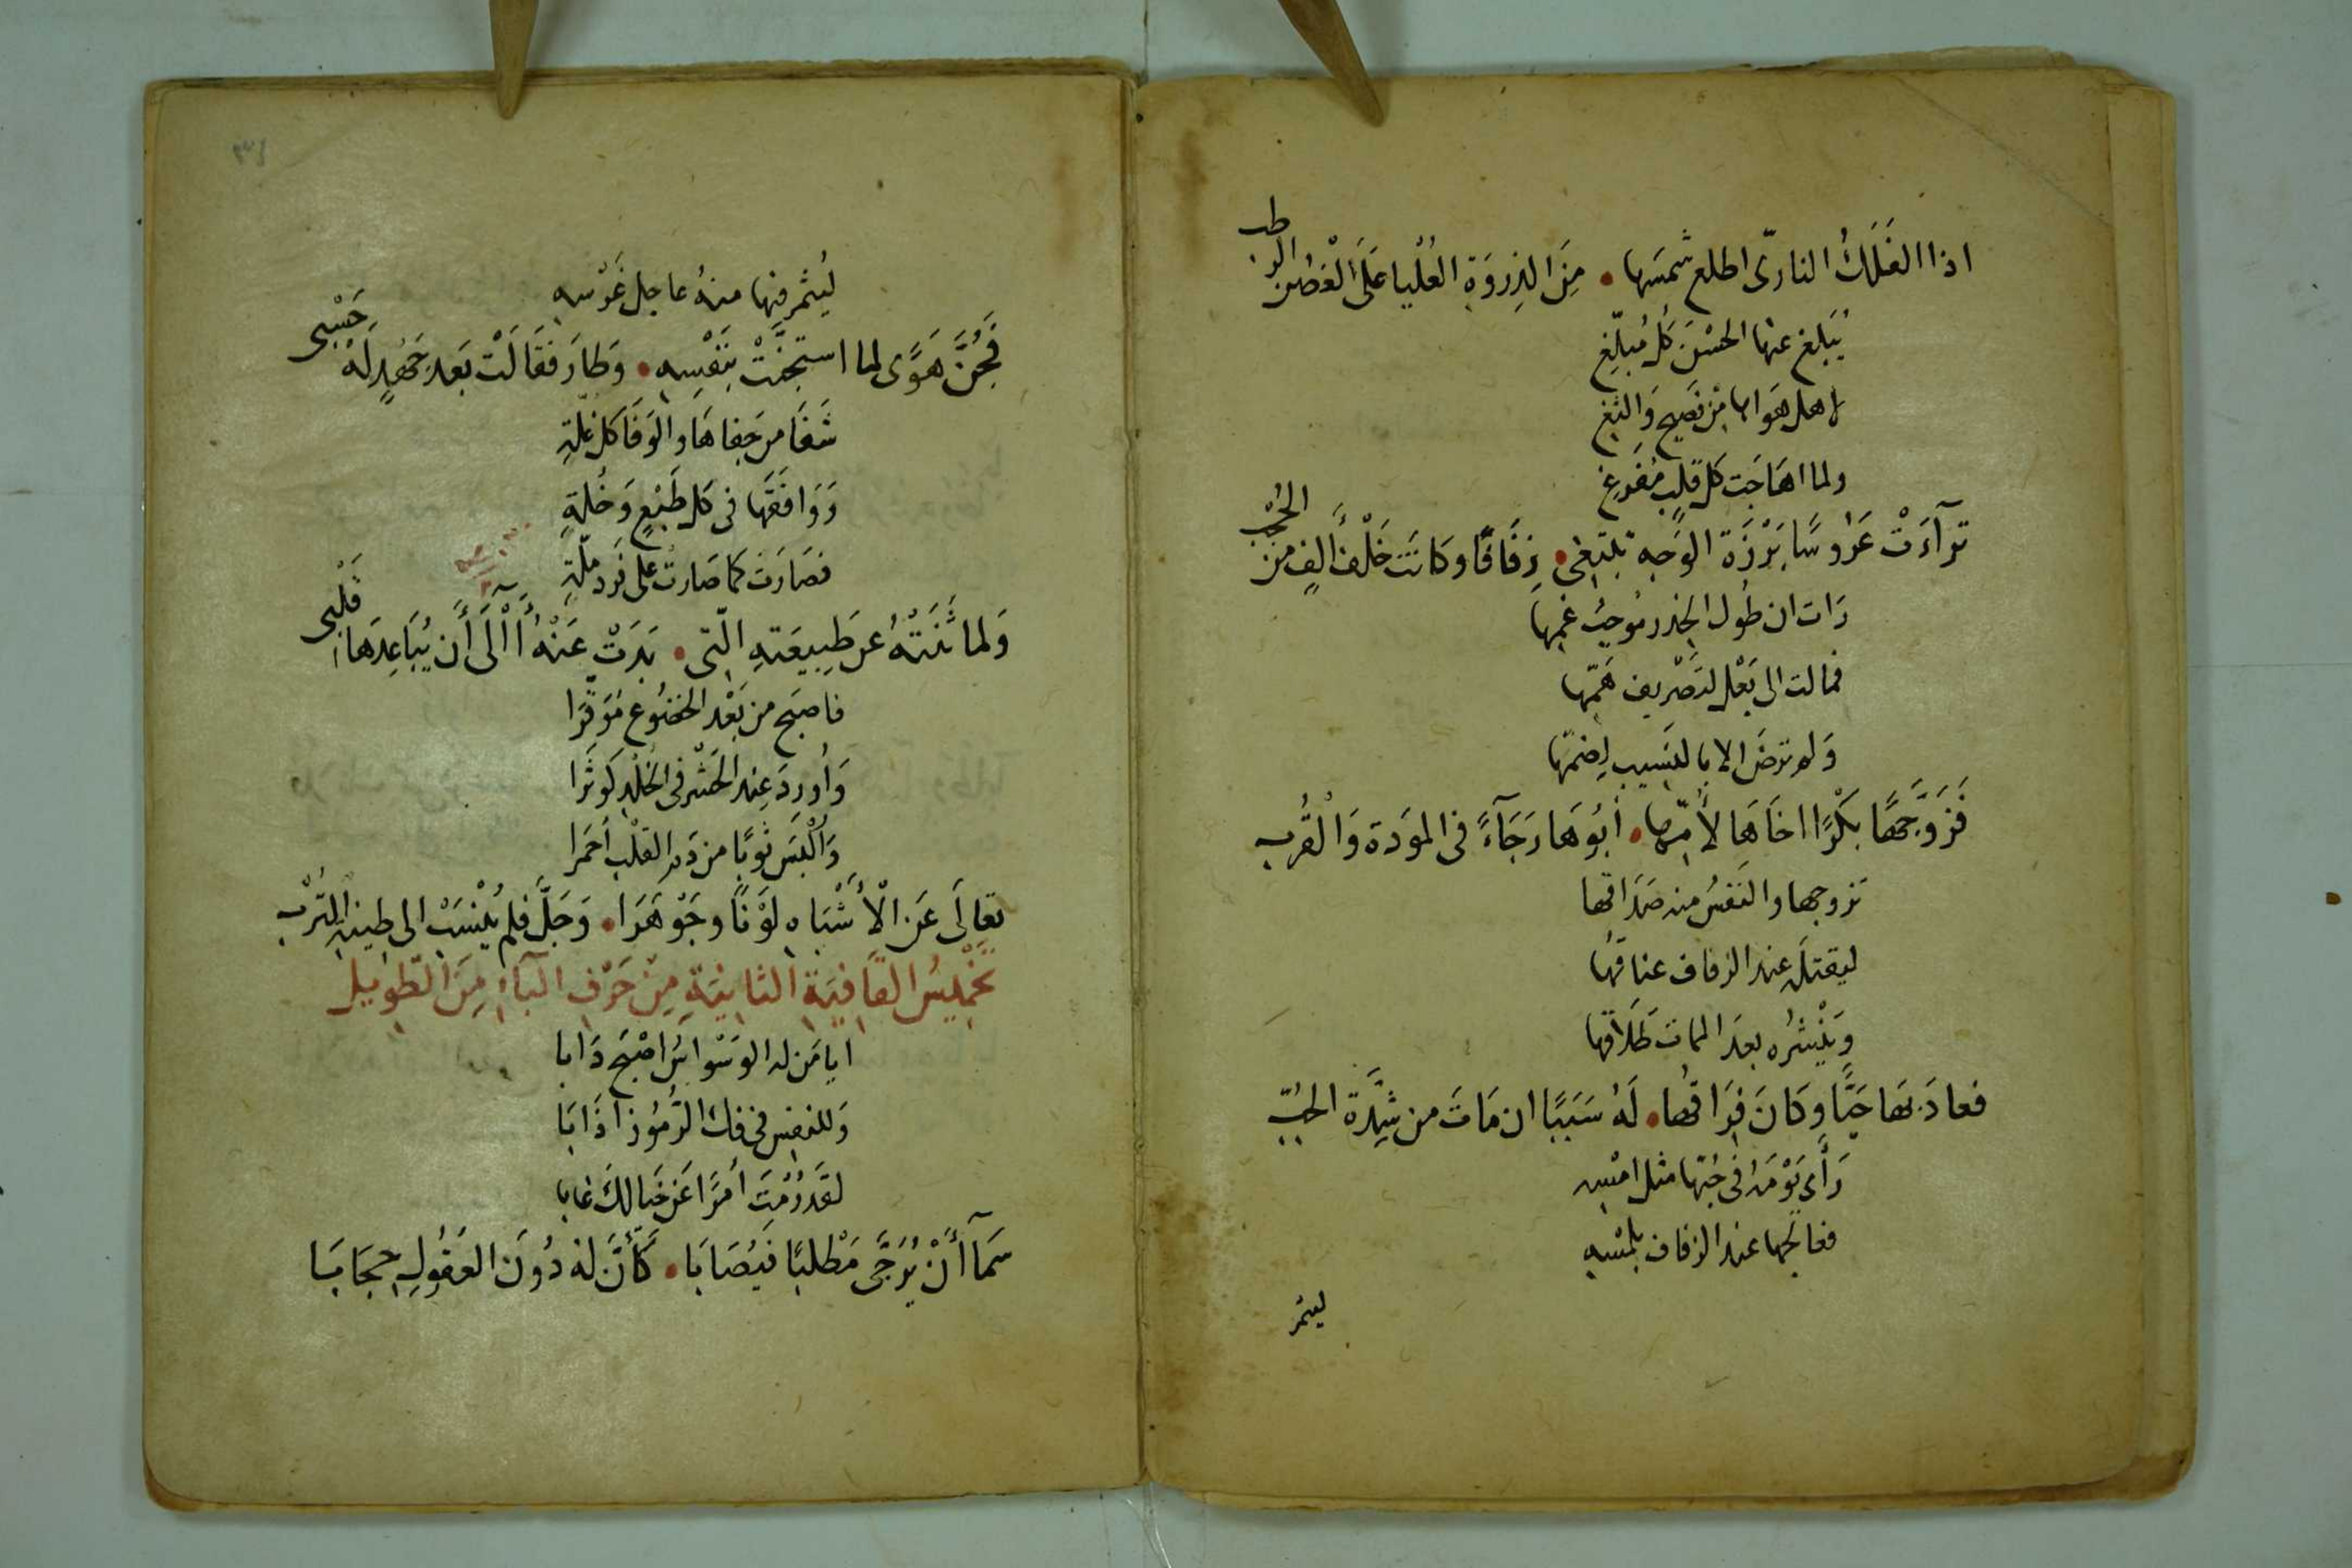 اذا الفَلَكُ النارىّ اطلع شمسَها • مِنَ الذِروَةِ العُلْيا عَلَى الْغصُن الرطب
يُبَلغ عنها الحسْنَ كلُ مُبلّغِ
لاهل هَواها مِن فَصيح وَالثغ
ولما اهَاجَت كل قلبٍ مُفَرغِ
ترآءَتْ عَرُوسًا بَرْزَة الوَجه تبتغى • زِفَافًا وكانَت خَلْفَ ألفٍ من الحُجْب
رَات ان طُول الخدر مُوجبُ غمها
فمالت الى بَعْل لتَصْريف هَمّها
وَلم ترضَ الا بالنسيب لِضمّها
فَزَوَّجَهَا بكْرًا اخَاهَا لأُمّها • أبُوهَا رَجَآءً فى الموَدة وَالْقُرب
تزوجها والنَفسُ منه صَدَاقها
ليقتلَه عند الزفاف عناقُها
وَيْنشُره بعدَ الممات طَلَاقها
فعادَ بَها حَيًّا وكَانَ فِرَاقُها • لَهُ سَبَبًا ان مَاتَ من شِدَّة الحُبّ
رَأى يَوْمَه فى حُبّها مثل امْسِه
فعالجها عند الزفاف بلمْسِه
ليثمر
ليُثمر فيها منهُ عاجل غَرْسه
فَجُنَّ هَوًى لما استجنَّتْ بنَفْسِه • وَطارَ فقَالَتْ بَعد جَهْدٍ لَهُ حَسْبى
شَفَا من جَفاهَا والوَفَا كل غلّةِ
وَوَافَقَها فى كل طَبْعٍ وَخُلةٍ
فصَارَت كما صَارت على فَرد ملّةِ
وَلما ثَنَتْهُ عن طَبِيعَتهِ الّتى • بَدَتْ عَنْهُ آلَى أن يُبَاعِدَهَا قَلْبى
فاصبَح من بَعْد الخضُوع مُوَقَّرا
وَأُوردَ عِند الحَشْر فى الخُلْدِ كَوثَرا
وَأُلْبسَ ثوبًا من دَم القلْب أحمَرا
تعالَى عَن الْأَشْبَاه لوْنًا وجَوْهَرَا • وَجَلَّ فلم يُنْسَبْ الى طينه التُرْب
تخْمِيسُ القَافِيَةِ الثانِيَةِ مِنْ حَرْفِ البَآءِ مِنَ الطّوِيل
ايا مَن له الوَسْواسُ اصْبَح دَابا
وَللنفس فى فك الرُّمُوز اذَابَا
لقد رُمْتَ أمْرًا عَن خَيالكَ غابا
سَمَآ أَنْ يُرَجَّى مَطْلبًا فيُصَابَا • كَأَنَّ لهُ دُونَ العُقُولِ حِجَابَا